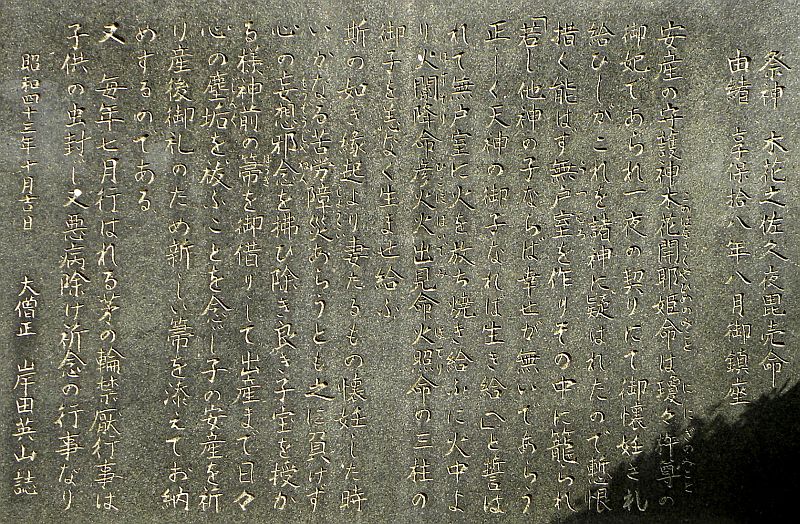 祭神 木花之佐久夜毘売命
由緒 享保拾八年八月御鎮座
安産の守護神木花開耶姫命は瓊々杵尊の
御妃であられ一夜の契りにて御懐妊され
給ひしがこれを諸神に疑はれたので慙恨
措く能はず無戸室を作りその中に籠られ
「若し他神の子ならは幸せが無いであらう
正しく天神の御子なれは生き給へ」と誓は
れて無戸室に火を放ち焼き給ふに火中よ
り火闌降命彦火火出見命火照命の三柱の
御子を恙なく生ませ給ふ
斯の如き縁起より妻たるもの懐妊した時
いかなる苦労障災あらうとも之に負けず
心の妄想邪念を拂ひ除き良き子宝を授か
る様神前の箒を御借りして出産まで日々
心の塵垢を祓ふことを念じ子の安産を祈
り産後御札のため新しい箒を添えてお納
めするのである
又 毎年七月行はれる茅の輪禁厭行事は
子供の虫封じ又悪病除け祈念の行事なり
昭和四十三年十月吉日 大僧正 岸由英山誌